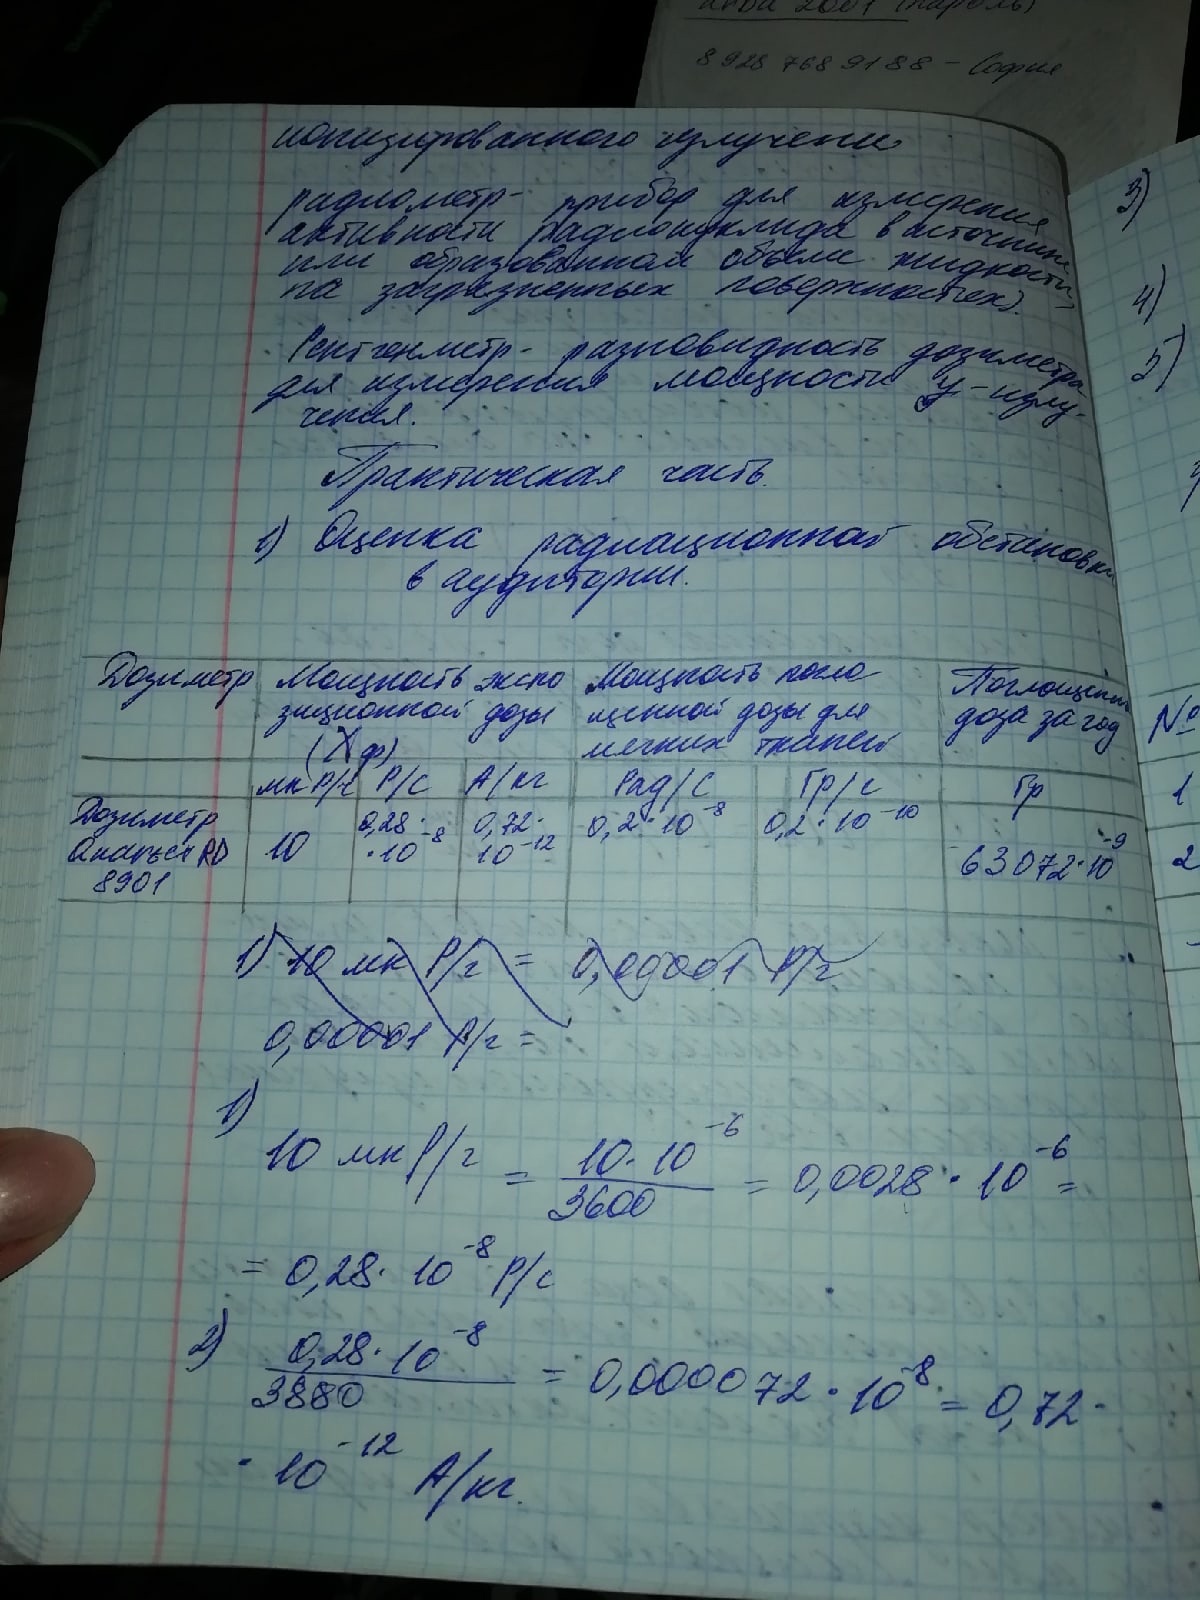 2001 (пароль)
8 928 768 91 88 - София
ионизированного излучения
радиометр - прибор для измерения
активности радионуклида в источнике
или образованном объеме жидкости,
на загрязненных поверхностях).
Рентгенметр - разновидность дозиметра
для измерения мощности γ-излу-
чения.
Практическая часть.
1) Оценка радиационной обстановки
в аудитории.
Дозиметр
Мощность экспо
зиционной дозы
(Xф)
Мощность погло
щенной дозы для
мягких тканей
Поглощенная
доза за год
мкР/ч Р/с А/кг Рад/с Гр/с Гр
Дозиметр
RD
8901
10
0,28·
·10⁻⁸
0,72·
10⁻¹²
0,2·10⁻⁸
0,2·10⁻¹⁰
63072·10⁻⁹
1) 10 мкР/г = 0,00001 Р/г
0,00001 Р/г =
1)
10 мкР/г = 10·10⁻⁶ / 3600 = 0,0028·10⁻⁶ =
= 0,28·10⁻⁸ Р/с
2) 0,28·10⁻⁸ / 3880 = 0,000072·10⁻⁸ = 0,72·
·10⁻¹² А/кг.
3)
4)
5)
№
1
2